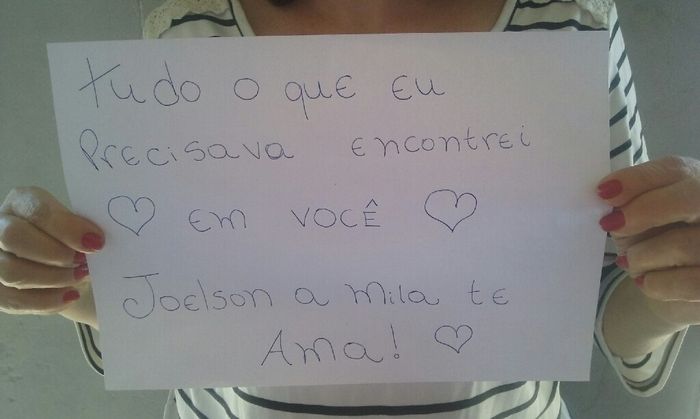 Tudo o que eu
Precisava encontrei
♡ em você ♡
Joelson a Mila te
Ama! ♡